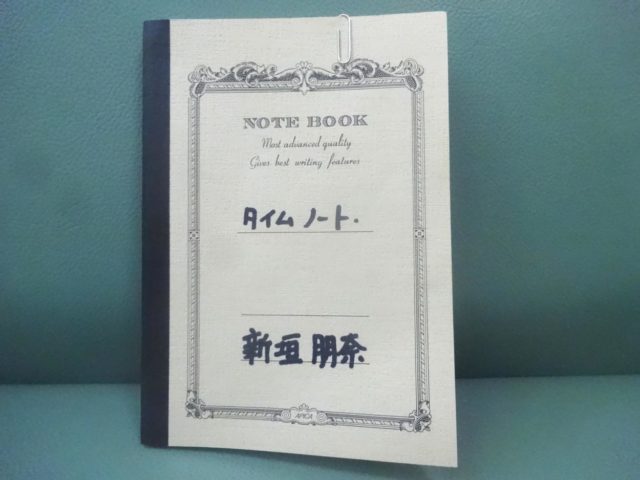 NOTE BOOK
Most advanced quality
Gives best writing features
タイムノート.
新垣朋奈
APICA